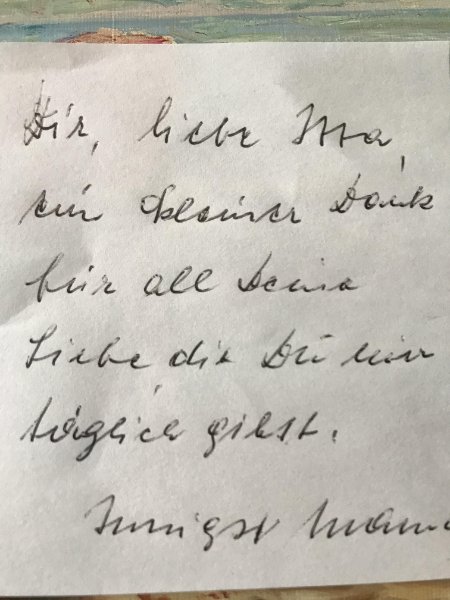 Dir, liebe Itta,
ein kleiner Dank
für all Deine
Liebe die Du mir
täglich gibst.
Innigst Mama